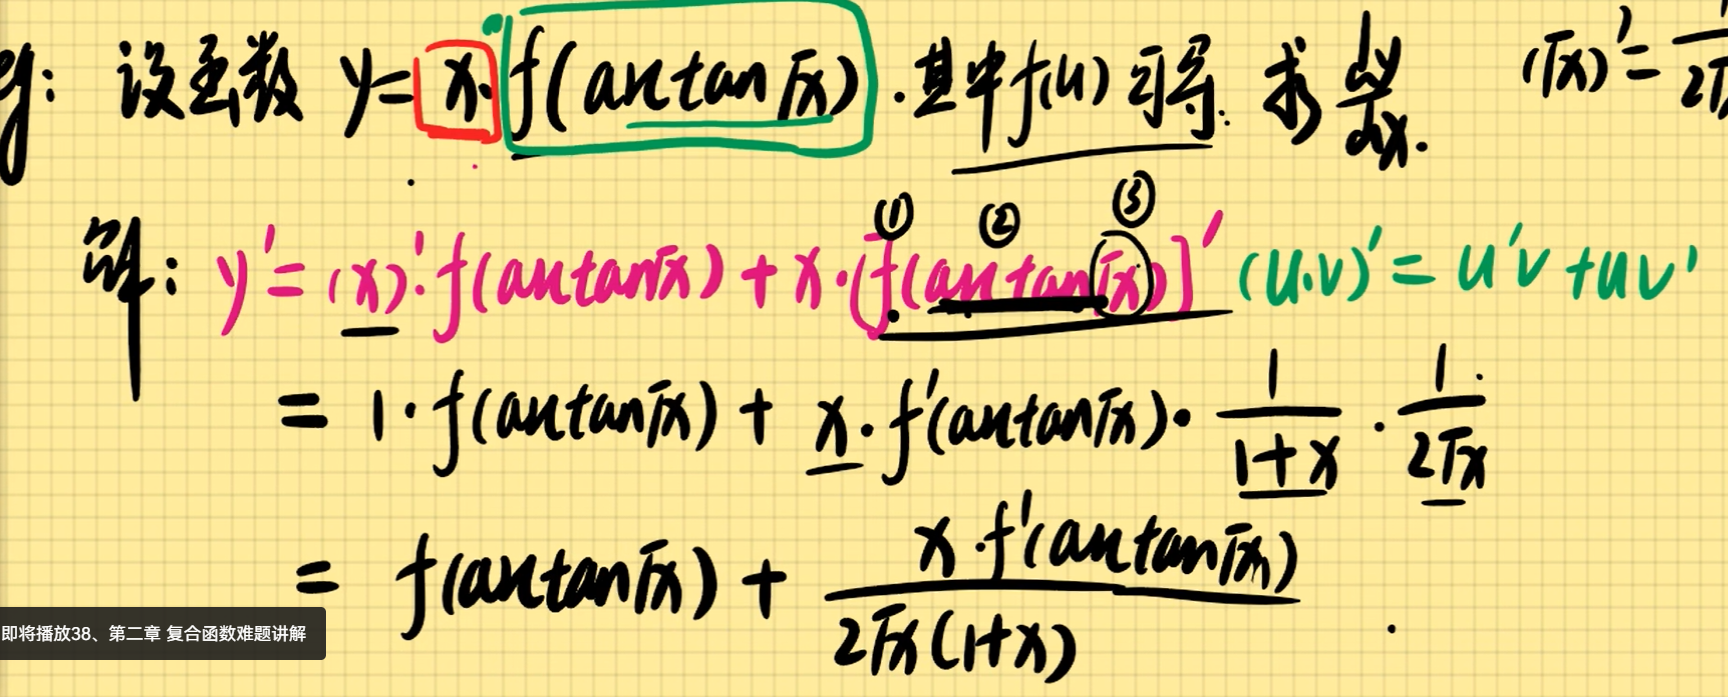 eg: 设函数 y=x·f(arctan√x).其中f(u)可导. 求dy/dx. (√x)'=1/2√
① ② ③
解: y'=(x)'·f(arctan√x)+x·[f(arctan√x)]' (u·v)'=u'v+uv'
=1·f(arctan√x)+x·f'(arctan√x)·1/(1+x)·1/(2√x)
=f(arctan√x)+x·f'(arctan√x)/(2√x(1+x))
即将播放38、第二章 复合函数难题讲解